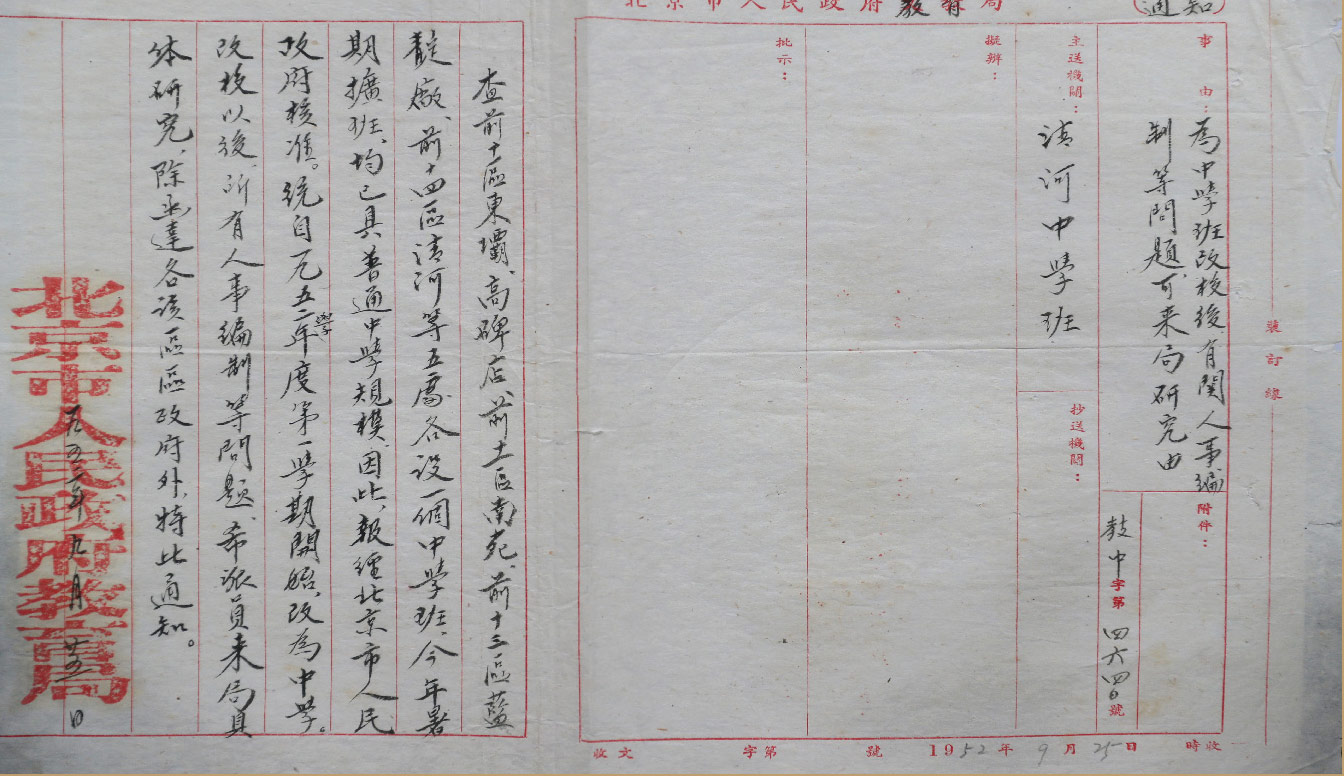 北京市人民政府教育局
通知
事由：為中學班改校後有関人事編
制等問題，可来局研究由
附件：
教中字第四六四日號
主送機關：清河中學班
抄送機關：
擬辦：
批示：
裝訂線
收文 字第 號 1952年9月25日 時收
查前十區東壩、高碑店、前十一區南苑、前十三區藍
靛廠、前十四區清河等五處各設一個中學班，今年暑
期擴班，均已具普通中學規模，因此，報經北京市人民
政府核准。統自一九五二學年度第一學期開始，改為中學。
改校以後，所有人事編制等問題、希派員来局具
体研究，除函達各該區區政府外，特此通知。
北京市人民政府教育局
一九五二年九月廿五日